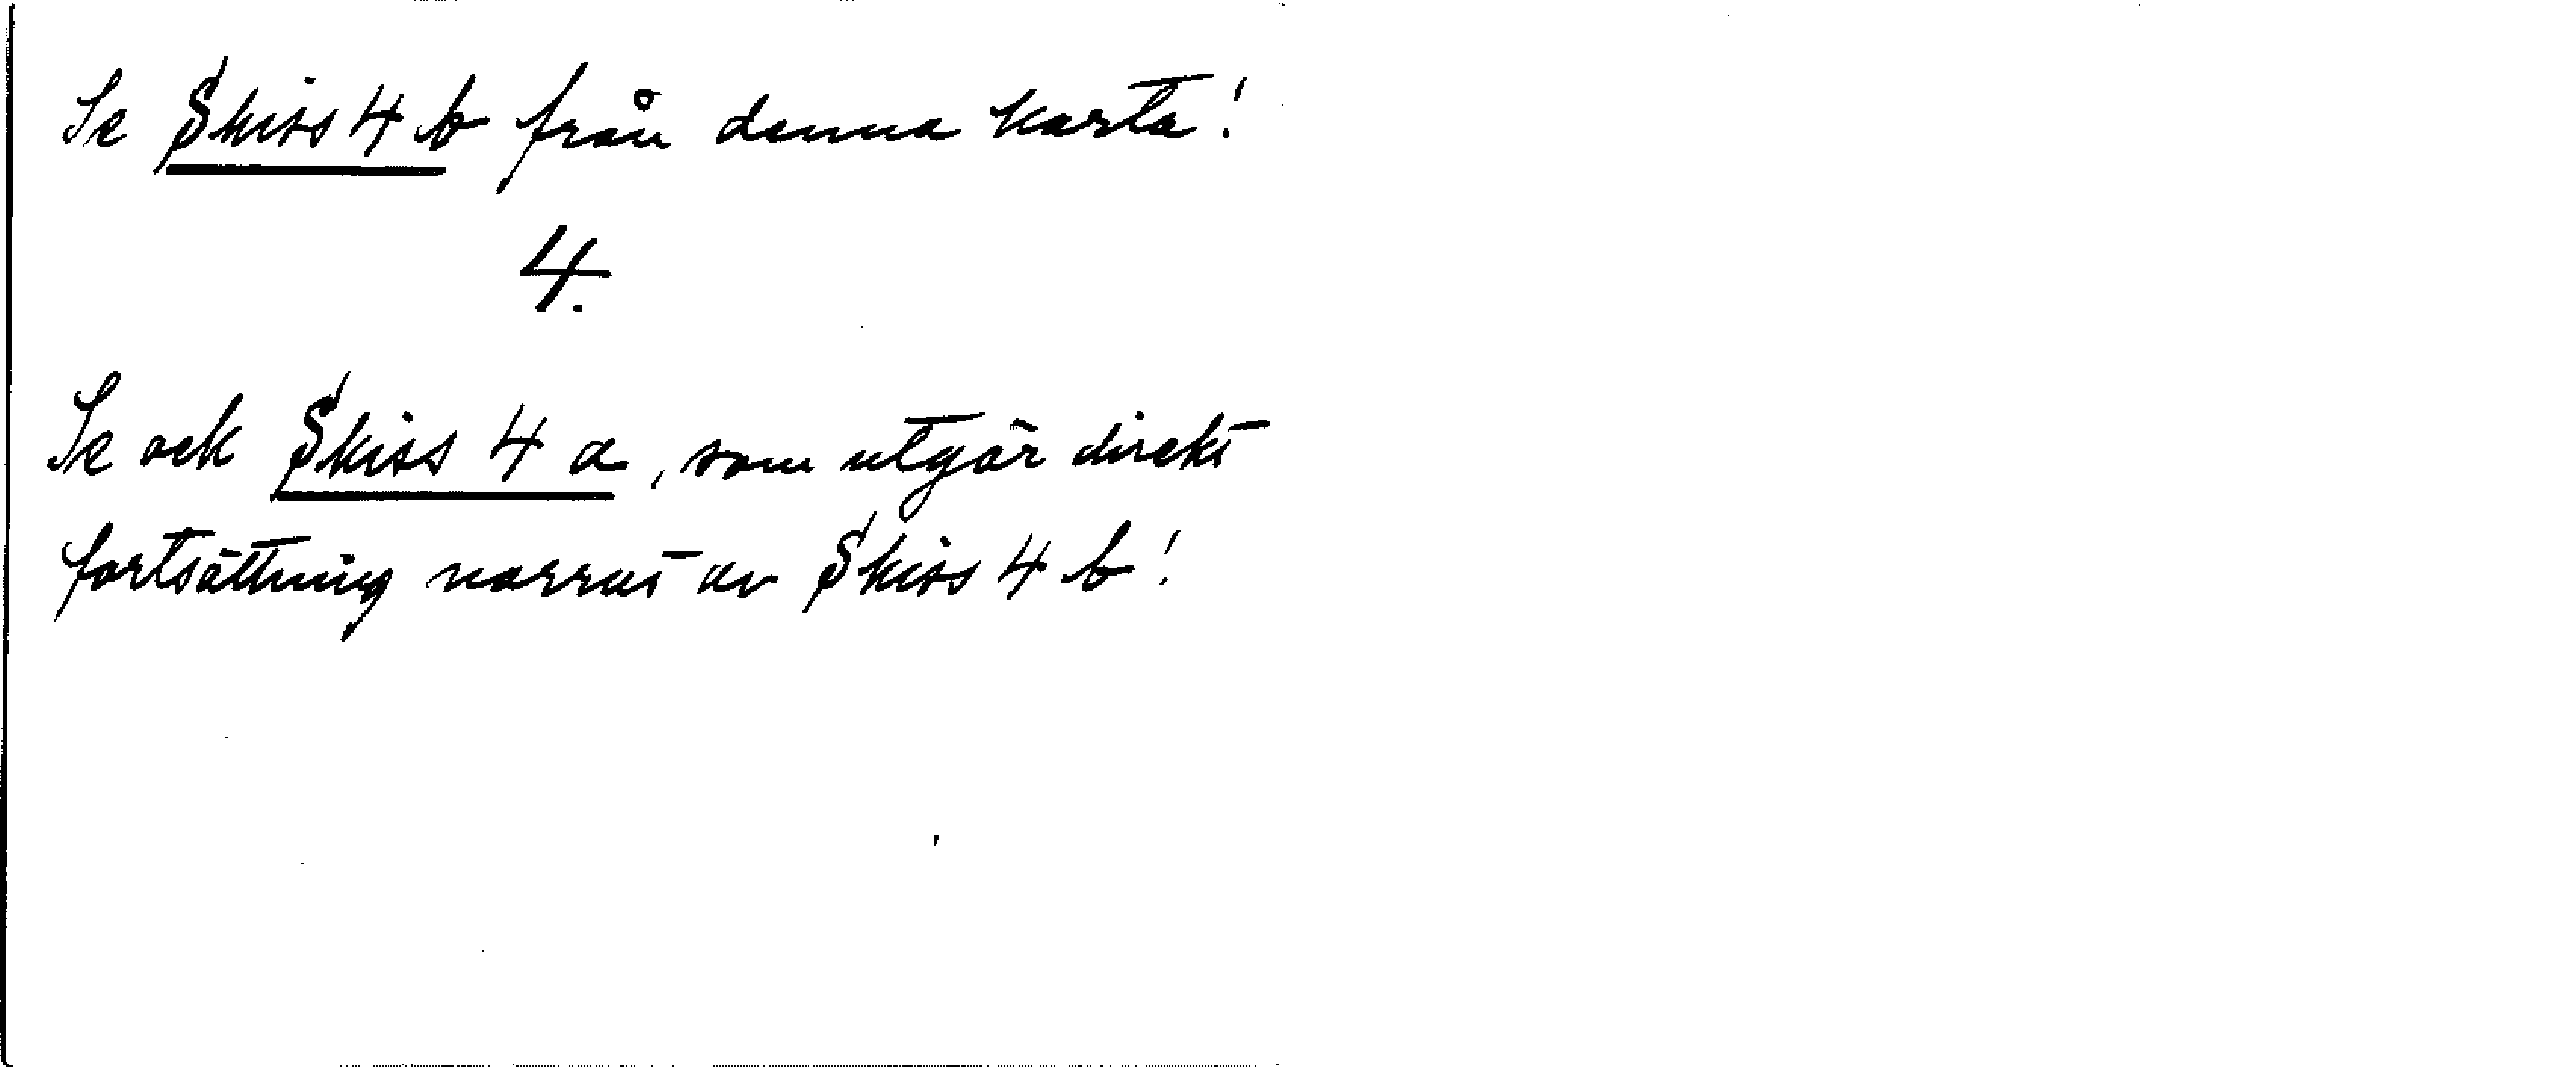 Se Skiss 4 b från denna karta!
4.
Se ock Skiss 4 a, som utgör direkt
fortsättning norrut av Skiss 4 b!